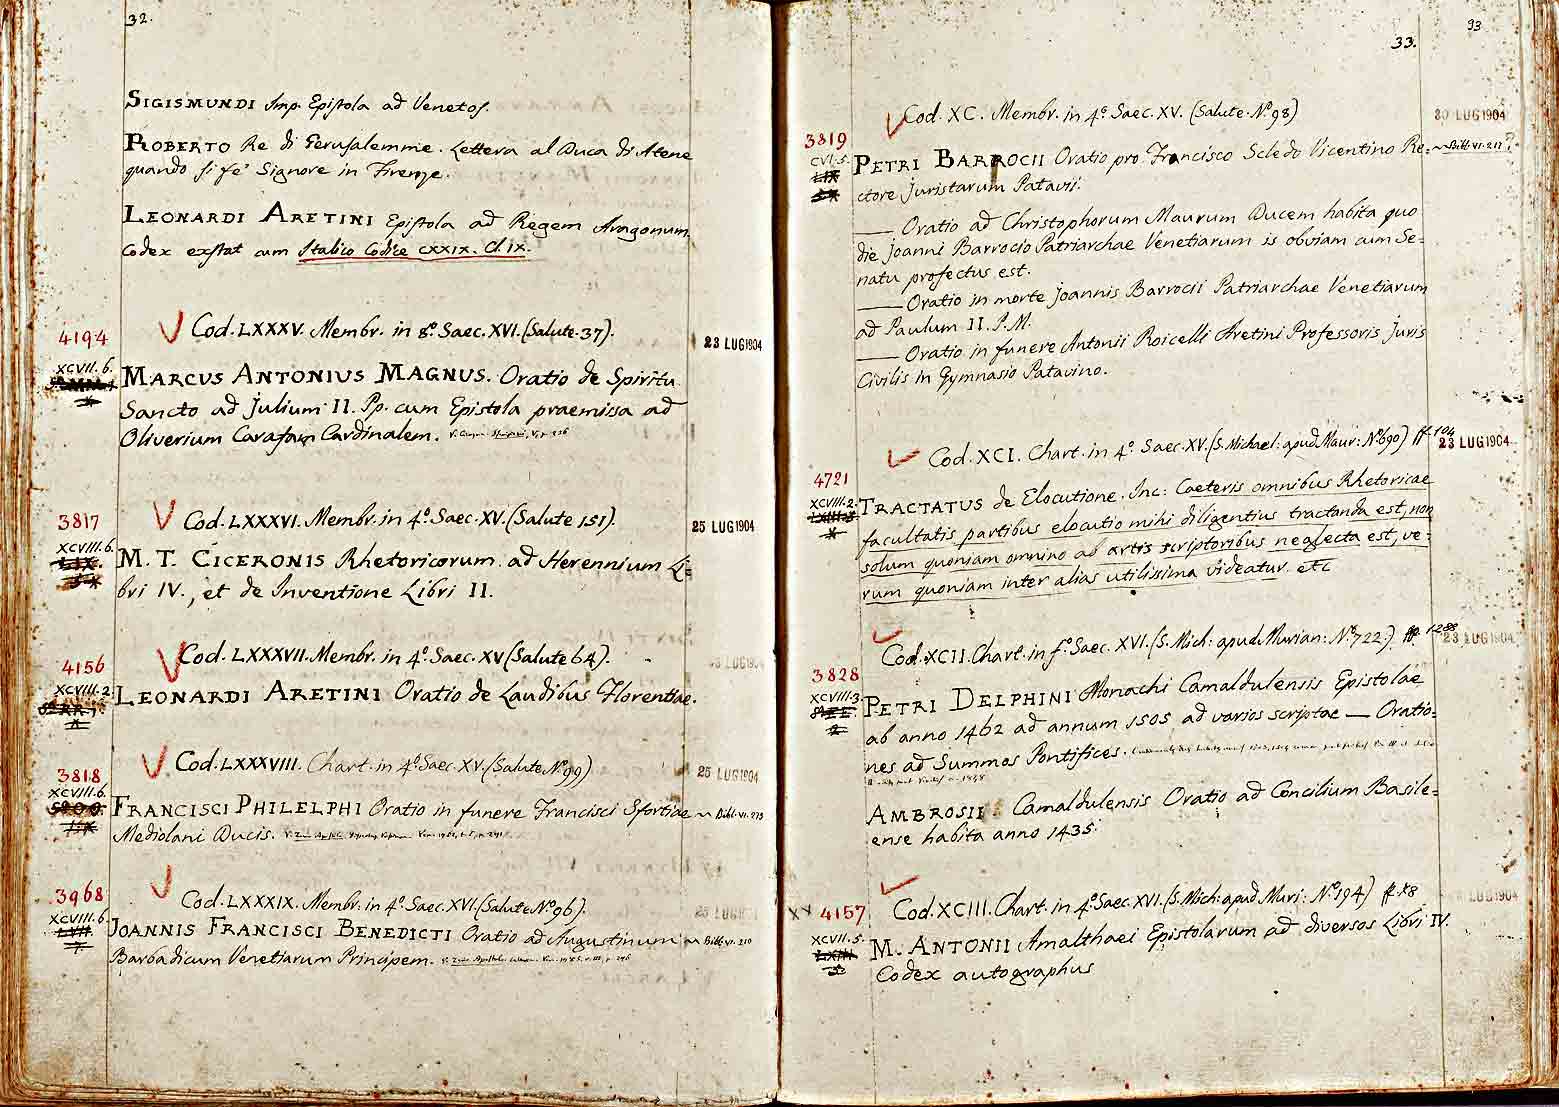 32.
SIGISMUNDI Imp. Epistola ad Venetos.
ROBERTO Re di Gerusalemme. Lettera al Duca di Atene
quando si fe' Signore in Firenze.
LEONARDI ARETINI Epistola ad Regem Aragonum.
Codex exstat cum Italico Codice CXXIX. Cl. IX.
4194
Cod. LXXXV. Membr. in 8.º Saec. XVI. (Salute. 37).
23 LUG 1904
XCVII. 6.
MARCUS ANTONIUS MAGNUS. Oratio de Spiritu
Sancto ad Julium II. Pp. cum Epistola praemissa ad
Oliverium Carafam Cardinalem.
3817
Cod. LXXXVI. Membr. in 4.º Saec. XV. (Salute 151).
25 LUG 1904
XCVIII. 6.
LIX.
M. T. CICERONIS Rhetoricorum ad Herennium Li=
bri IV., et de Inventione Libri II.
4156
Cod. LXXXVII. Membr. in 4.º Saec. XV (Salute 64).
LUG 1904
XCVIII. 2.
LEONARDI ARETINI Oratio de Laudibus Florentiae.
3818
Cod. LXXXVIII. Chart. in 4.º Saec. XV. (Salute Nº 99)
25 LUG 1904
XCVIII. 6.
FRANCISCI PHILELPHI Oratio in funere Francisci Sfortiae
Mediolani Ducis.
3968
Cod. LXXXIX. Membr. in 4.º Saec. XVI. (Salute Nº 96).
XCVIII. 6.
LVII.
JOANNIS FRANCISCI BENEDICTI Oratio ad Augustinum
Barbadicum Venetiarum Principem.
93
33.
Cod. XC. Membr. in 4.º Saec. XV. (Salute. Nº 98)
30 LUG 1904
3819
CVI. 5.
LIX
PETRI BARROCII Oratio pro Francisco Scledo Vicentino Re=
ctore Juristarum Patavii.
Oratio ad Christophorum Maurum Ducem habita quo
die Joanni Barrocio Patriarchae Venetiarum is obviam cum Se=
natu profectus est.
Oratio in morte Joannis Barrocii Patriarchae Venetiarum
ad Paulum II. P. M.
Oratio in funere Antonii Roicelli Aretini Professoris Juris
Civilis in Gymnasio Patavino.
Cod. XCI. Chart. in 4.º Saec. XV. (S. Michael: apud Maur: Nº 690) ff. 104
23 LUG 1904
4721
XCVIII. 2.
TRACTATUS de Elocutione. Inc: Caeteris omnibus Rhetoricae
facultatis partibus elocutio mihi diligentius tractanda est, non
solum quoniam omnino ab artis scriptoribus neglecta est, ve=
rum quoniam inter alias utilissima videatur. etc
Cod. XCII. Chart. in f.º Saec. XVI. (S. Mich: apud Murian: Nº 722.) ff. 288
23 LUG 1904
3828
XCVIII. 3.
PETRI DELPHINI Monachi Camaldulensis Epistolae
ab anno 1462 ad annum 1505 ad varios scriptae — Oratio=
nes ad Summos Pontifices.
AMBROSII Camaldulensis Oratio ad Concilium Basile=
ense habita anno 1435.
Cod. XCIII. Chart. in 4.º Saec. XVI. (S. Mich: apud Muri: Nº 194)
LUG 1904
4157
XCVII. 5.
M. ANTONII Amalthaei Epistolarum ad diversos Libri IV.
Codex autographus